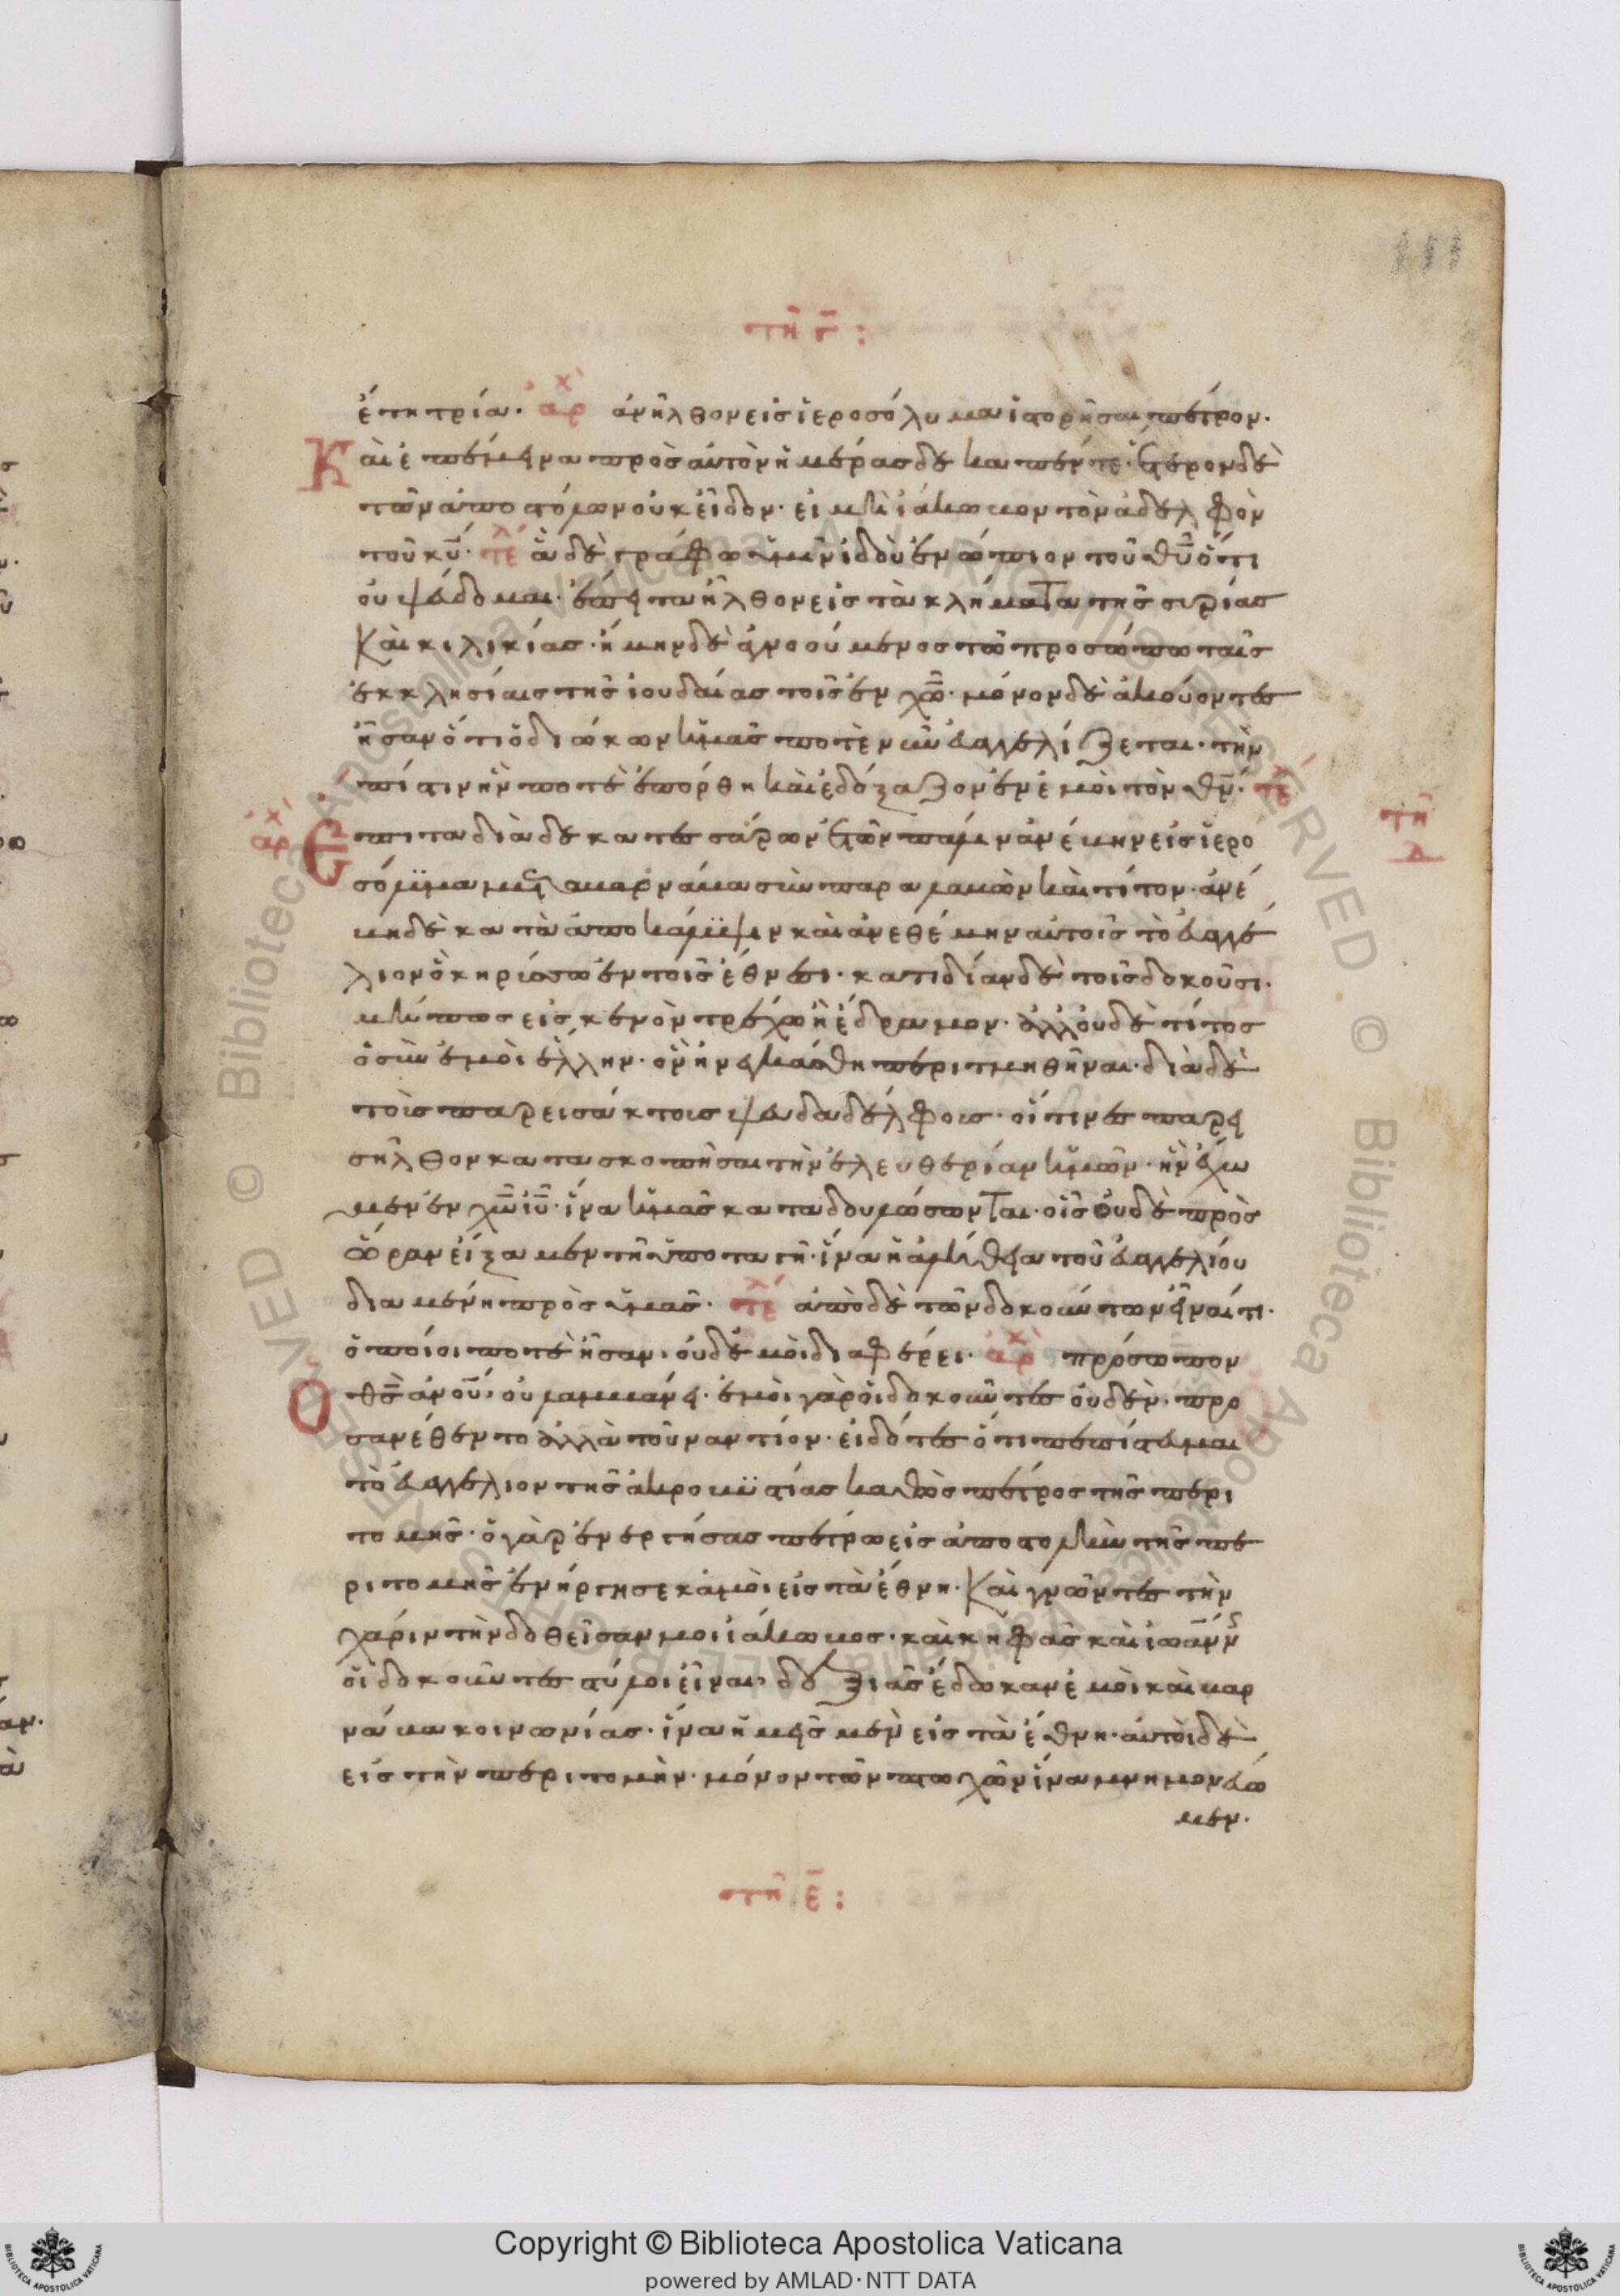 111
τῆ γ̄ :
ἔτη τρία. ἀρχ ἀνῆλθον εἰς ἱεροσόλυμα ἱστορῆσαι πέτρον.
Καὶ ἐπέμεινα πρὸς αὐτὸν ἡμέρας δεκαπέντε· ἕτερον δὲ
τῶν ἀποστόλων οὐκ εἶδον· εἰ μὴ ἰάκωβον τὸν ἀδελφὸν
τοῦ κυ̅· τέλ ἃ δὲ γράφω ὑμῖν ἰδοὺ ἐνώπιον τοῦ θυ̅ ὅτι
οὐ ψεύδομαι· ἔπειτα ἦλθον εἰς τὰ κλήματα τῆς συρίας
καὶ κιλικίας· ἤμην δὲ ἀγνοούμενος τῶ προσώπω ταῖς
ἐκκλησίαις τῆς ἰουδαίας τοῖς ἐν χω̅· μόνον δὲ ἀκούοντες
ἦσαν ὅτι ὁ διώκων ἡμᾶς ποτὲ νῦν εὐαγγελίζεται· τὴν
πίστιν ἥν ποτε ἐπόρθη καὶ ἐδόξαζον ἐν ἐμοὶ τὸν θν̅· τέλ
ἀρχ Ἔπιτα διὰ δεκατεσσάρων ἐτῶν πάλιν ἀνέβην εἰς ἱερο
τῆ δ
σόλυμα μετὰ βαρνάβα συνπαραλαβὼν καὶ τίτον· ἀνέ
βην δὲ κατὰ ἀποκάλυψιν καὶ ἀνεθέμην αὐτοῖς τὸ εὐαγγέ
λιον ὃ κηρύσσω ἐν τοῖς ἔθνεσι· κατιδίαν δὲ τοῖς δοκοῦσι.
μήπως εἰς κενὸν τρέχω ἢ ἔδραμον· ἀλλ οὐδὲ τίτος
ὁ σὺν ἐμοὶ ἕλλην· ὢν ἠναγκάσθη περιτμηθῆναι· διὰ δὲ
τοὺς παρεισάκτους ψευδαδέλφους· οἵτινες παρει
σῆλθον κατασκοπῆσαι τὴν ἐλευθερίαν ἡμῶν· ἣν ἔχω
μεν ἐν χω̅ ιυ̅· ἵνα ἡμᾶς καταδουλώσωνται· οἷς οὐδὲ πρὸς
ὥραν εἴξαμεν τῆ ὑποταγῆ· ἵνα ἡ ἀλήθεια τοῦ εὐαγγελίου
διαμένη πρὸς ὑμᾶς· τέλ ἀπὸ δὲ τῶν δοκούντων εἶναί τι.
ὁποίοι ποτὲ ἦσαν· οὐδέ μοι διαφέρει· ἀρχ πρόσωπον
Ὁ θς̅ ἀνου̅· οὐ λαμβάνει· ἐμοὶ γὰρ οἱ δοκοῦντες οὐδὲν· προ
σανέθεντο ἀλλὰ τοὐναντίον· εἰδότες ὅτι πεπίστευμαι
τὸ εὐαγγέλιον τῆς ἀκροβυστίας καθὼς πέτρος τῆς περι
τομῆς· ὁ γὰρ ἐνεργήσας πέτρω εἰς ἀποστολὴν τῆς πε
ριτομῆς ἐνήργησε κἀμοὶ εἰς τὰ ἔθνη· Καὶ γνῶντες τὴν
χάριν τὴν δοθεῖσαν μοι ἰάκωβος· καὶ κηφᾶς καὶ ἰωάνν
οἱ δοκοῦντες στύλοι εἶναι· δεξιὰς ἔδωκαν ἐμοὶ καὶ βαρ
νάβα κοινωνίας· ἵνα ἡμεῖς μὲν εἰς τὰ ἔθνη· αὐτοὶ δὲ
εἰς τὴν περιτομήν· μόνον τῶν πτωχῶν ἵνα μνημονεύω
μεν.
τῆ ε̅ :
Copyright © Biblioteca Apostolica Vaticana
powered by AMLAD·NTT DATA